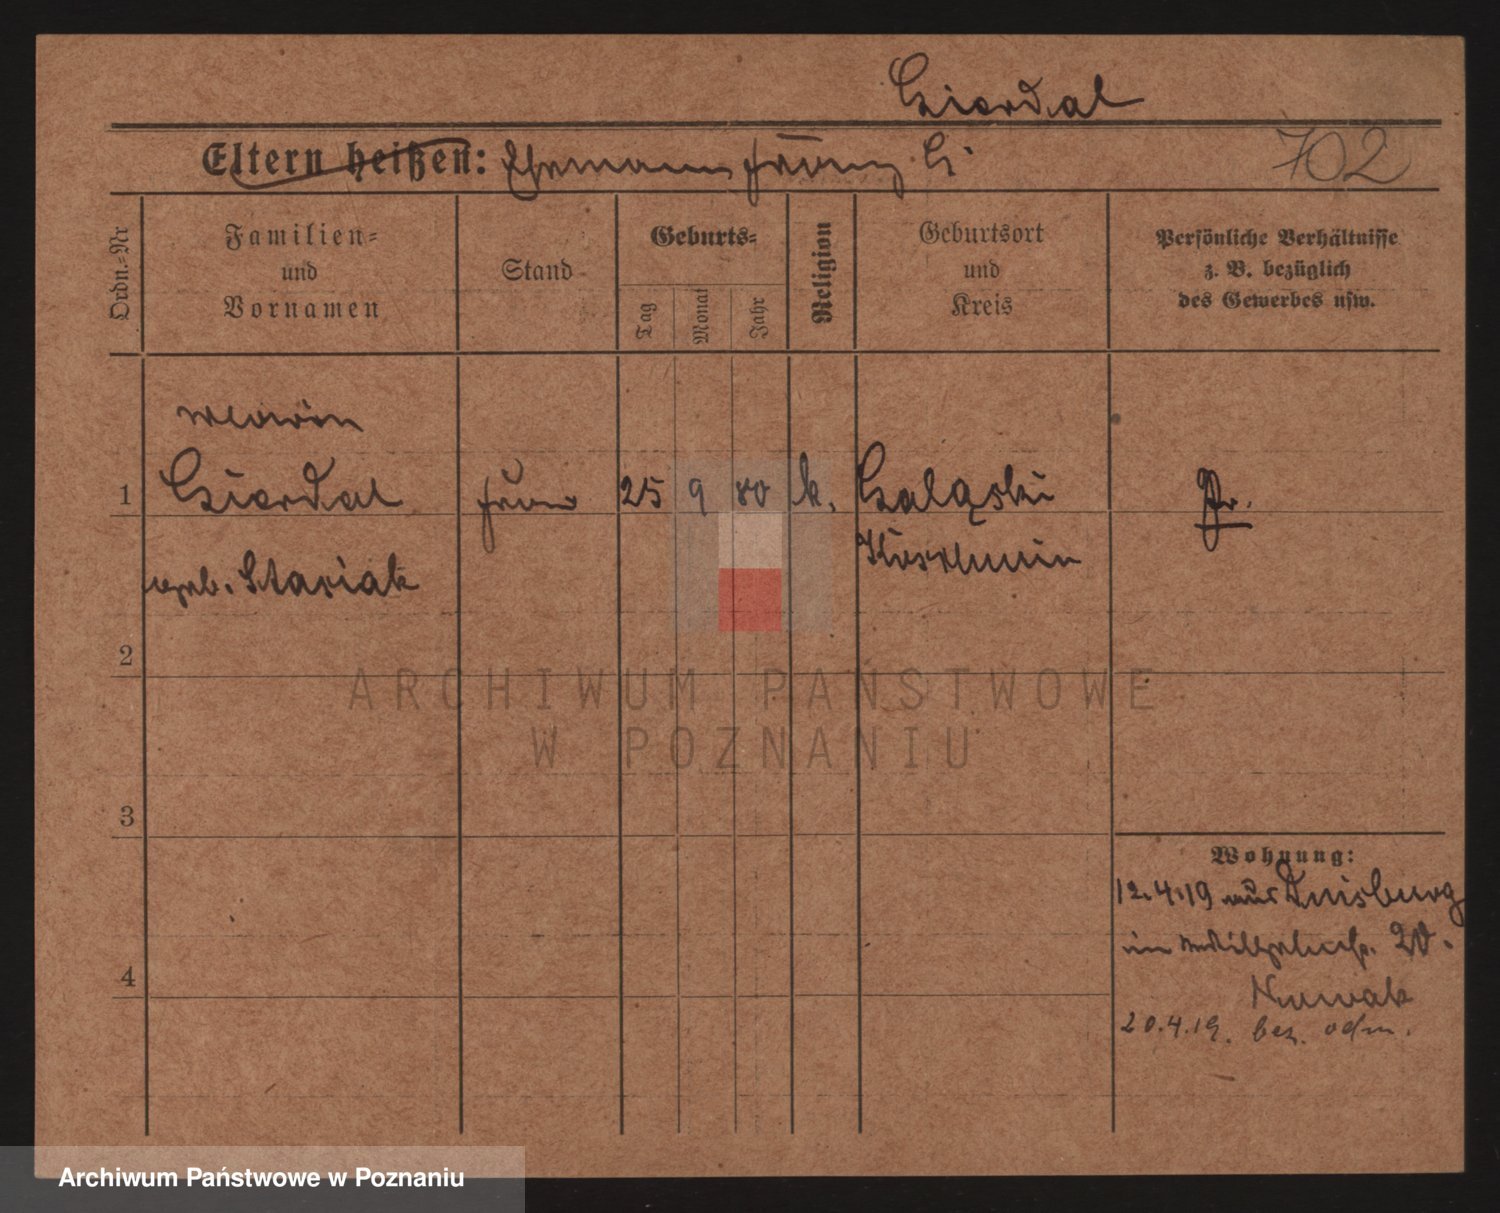 Gierdal
Eltern heißen: Ehemann Franz G.
702
Ordn.-Nr
Familien-
und
Vornamen
Stand
Geburts-
Tag
Monat
Jahr
Religion
Geburtsort
und
Kreis
Persönliche Verhältnisse
z. B. bezüglich
des Gewerbes usw.
Maria
1 Gierdal Frau 25 9 80 k. Galąski Pr.
Koschmin
geb. Stasiak
2
3
4
Wohnung:
12.4.19 aus Duisburg
20.
Nowak
20.4.19. bez. odm.
ARCHIWUM PAŃSTWOWE
W POZNANIU
Archiwum Państwowe w Poznaniu